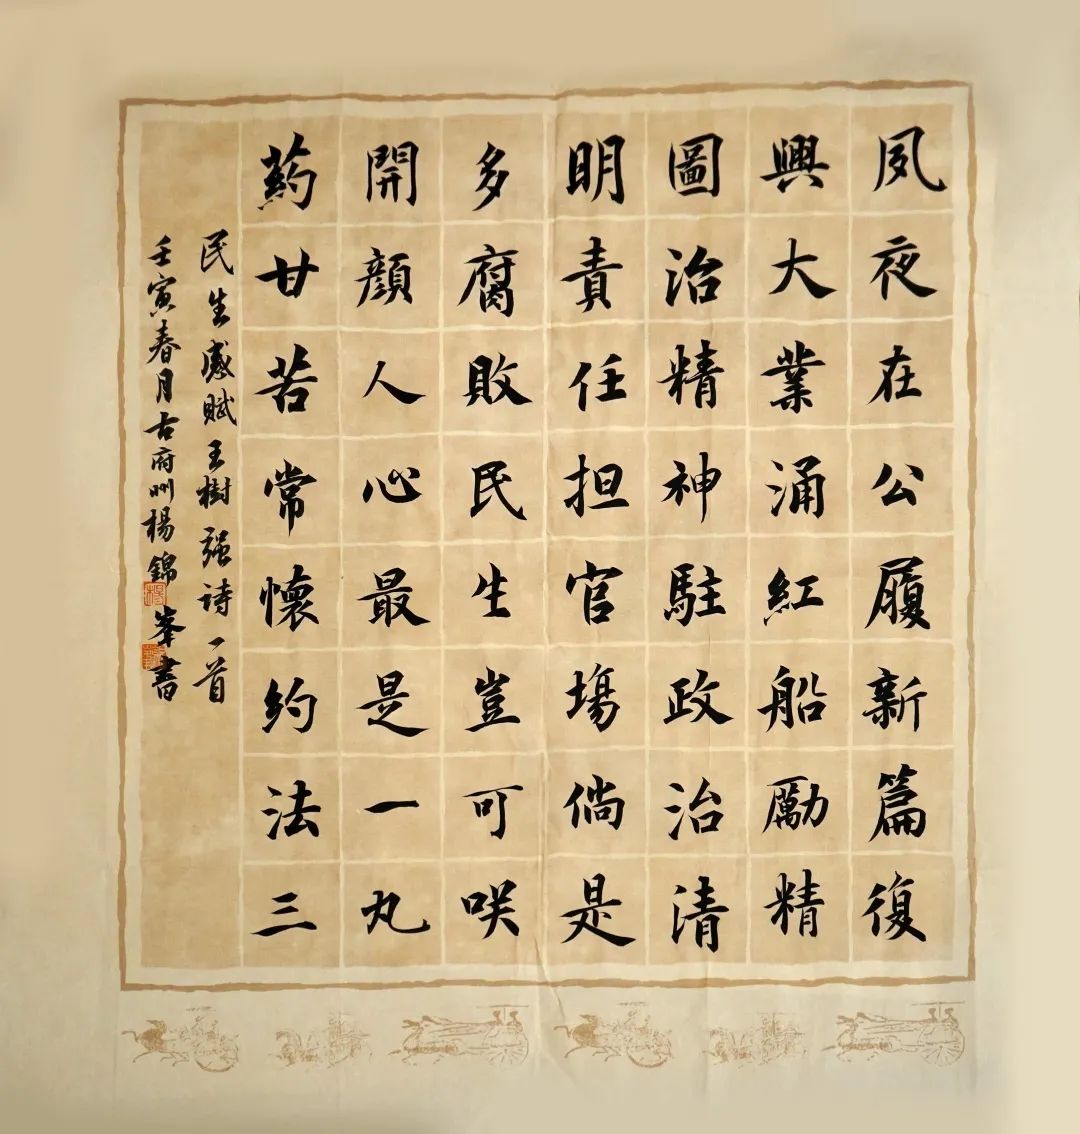 夙夜在公履新篇復
興大業涌紅船勵精
圖治精神駐政治清
明責任担官場倘是
多腐敗民生豈可咲
開顔人心最是一丸
葯甘苦常懷約法三
民生感賦王樹强詩一首
壬寅春月古府州楊錦峯書